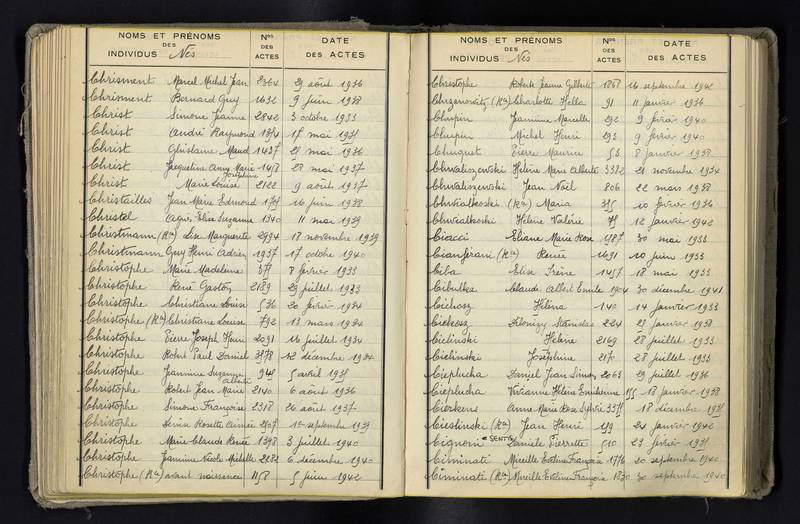 NOMS ET PRÉNOMS DES INDIVIDUS Nés Nos DES ACTES DATE DES ACTES
Chrisment Marcel Michel Jean 2364 29 août 1936
Chrisment Bernard Guy 1632 9 juin 1938
Christ Simone Jeanne 2842 3 octobre 1933
Christ André Raymond 17 mai
Christ Ghislaine Maud 1437 1936
Christ Jacqueline Anny Marie Joséphine 28 mai 1937
Christ Marie Louise 2122 9 août 1937
Christailles Jean Marie Edmond 16 juin 1938
Christel Agnès Elise Suzanne 1340 11 mai 1939
Christmann (Rce) Lise Marguerite 2994 18 novembre 1939
Christmann Guy Henri Adrien 1937 17 octobre 1940
Christophe Marie Madeleine 8 février 1933
Christophe René Gaston 2189 29 juillet 1933
Christophe Christiane Louise 536 20 février 1934
Christophe (Rce) Christiane Louise 792 13 mars 1934
Christophe Pierre Joseph Henri 2091 16 juillet 1934
Christophe Robert Paul Daniel 12 décembre 1934
Christophe Jeannine Suzanne Alberte avril
Christophe Robert Jean Marie 2140 6 août 1936
Christophe Simone Françoise 2318 26 août 1937
Christophe Rosette Année 1er septembre 1939
Christophe Marie Claude Renée 1398 3 juillet 1940
Christophe Jeannine Nicole Michelle 2282 6 décembre 1940
Christophe (Rce) avant naissance 5 juin 1942
NOMS ET PRÉNOMS DES INDIVIDUS Nés Nos DES ACTES DATE DES ACTES
Christophe Roberte Jeanne Gilberte 1868 16 septembre
Chrzanowitz (Rce) Charlotte Hella 91 11 janvier 1936
Chupin Jeannine Marcelle 292 9 février 1940
Chupin Michel Henri 293 9 février 1940
Chuquet Pierre Maurice 53 8 janvier 1938
Chwaliszewski Hélène Marie Alberte 3382 21 novembre 1934
Chwaliszewski Jean Noël 806 22 mars 1938
Chwialkoski (Rce) Maria 10 février 1936
Chwialkoski Hélène Valérie 12 janvier 1942
Ciacci Eliane Marie Rose 30 mai 1933
Cianférani (Rce) Renée 1691 10 juin 1933
Ciba Elise Irène 1457 18 mai 1933
Cibulka Claude Albert Emile 1904 30 décembre 1941
Cichosz Héléna 140 14 janvier 1933
Stanislas 224 21 janvier 1938
Cielinski Hélène 2169 28 juillet 1933
Cielinski Joséphine 2170 28 juillet 1933
Cieplucha Daniel Jean Simon 2063 29 juillet 1936
Cieplucha Vivianne Hélène 18 janvier 1938
Cierkens Anne Marie Rose Sylvie 18 décembre
Cieslinski (Rce) Jean Henri 24 janvier 1942
Cignoni - SENTIS Danièle Pierrette 23 février
Ciminati Mireille Eveline Françoise 1776 20 septembre 1940
Ciminati (Rce) Mireille Eveline Françoise 30 septembre 1940